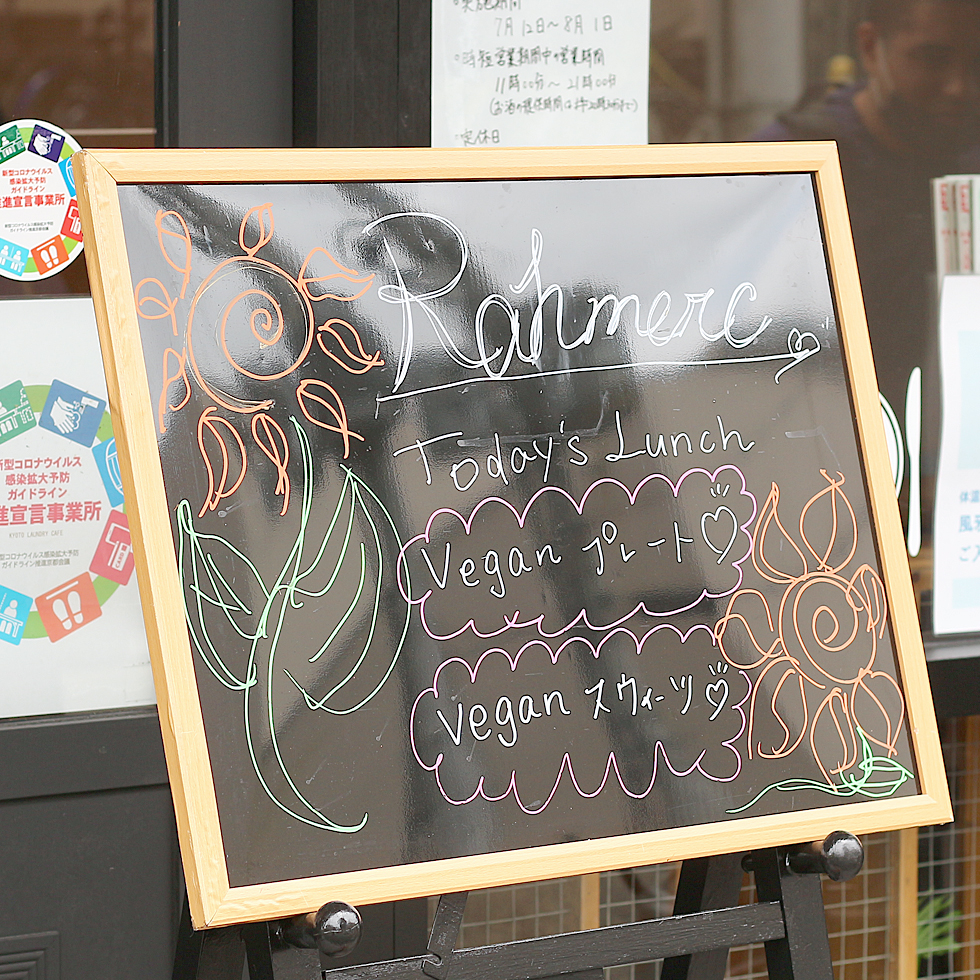 実施期間
7月12日〜8月1日
時短営業期間中の営業時間
11時00分 〜 21時00分
定休日
新型コロナウイルス
感染拡大予防
ガイドライン
進宣言事業所
Rahmerc
Today's Lunch
Vegan プレート♡
Vegan スウィーツ♡
新型コロナウイルス
感染拡大予防
ガイドライン
進宣言事業所
KYOTO LAUNDRY CAFE
新型コロナウイルス感染拡大予防
ガイドライン推進京都会議